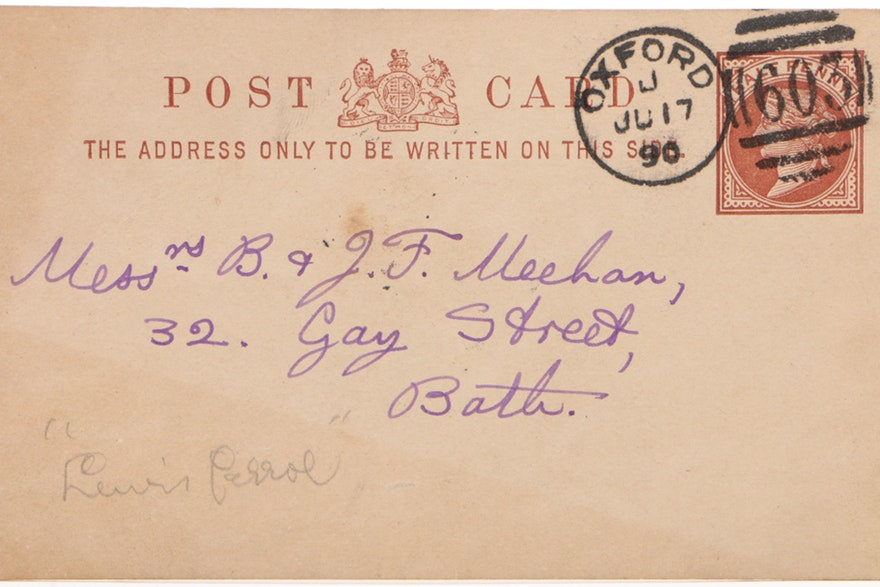 POST CARD
THE ADDRESS ONLY TO BE WRITTEN ON THIS SIDE.
OXFORD
J
JU 17
90
603
HALF PENNY
Messrs B. & J. F. Meehan,
32. Gay Street,
Bath.
"Lewis Carrol"